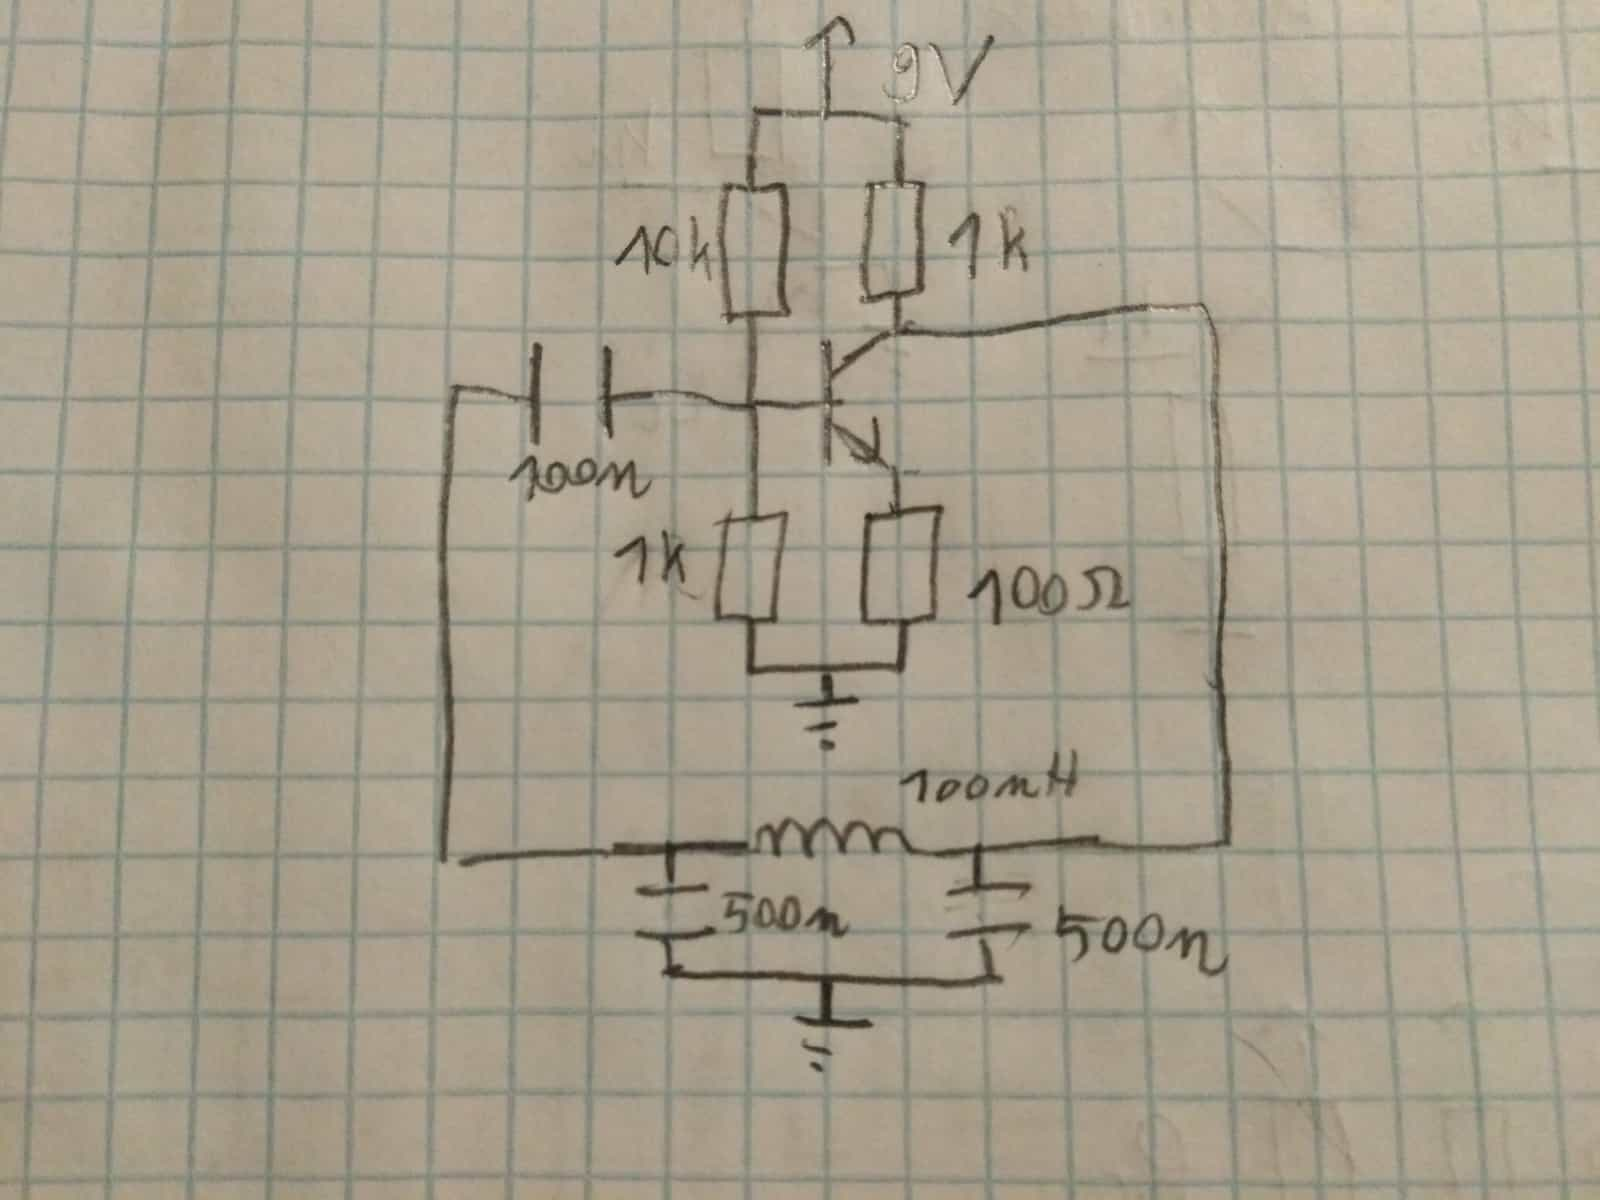 9V
10k
1k
100n
1k
100Ω
100nH
500n
500n